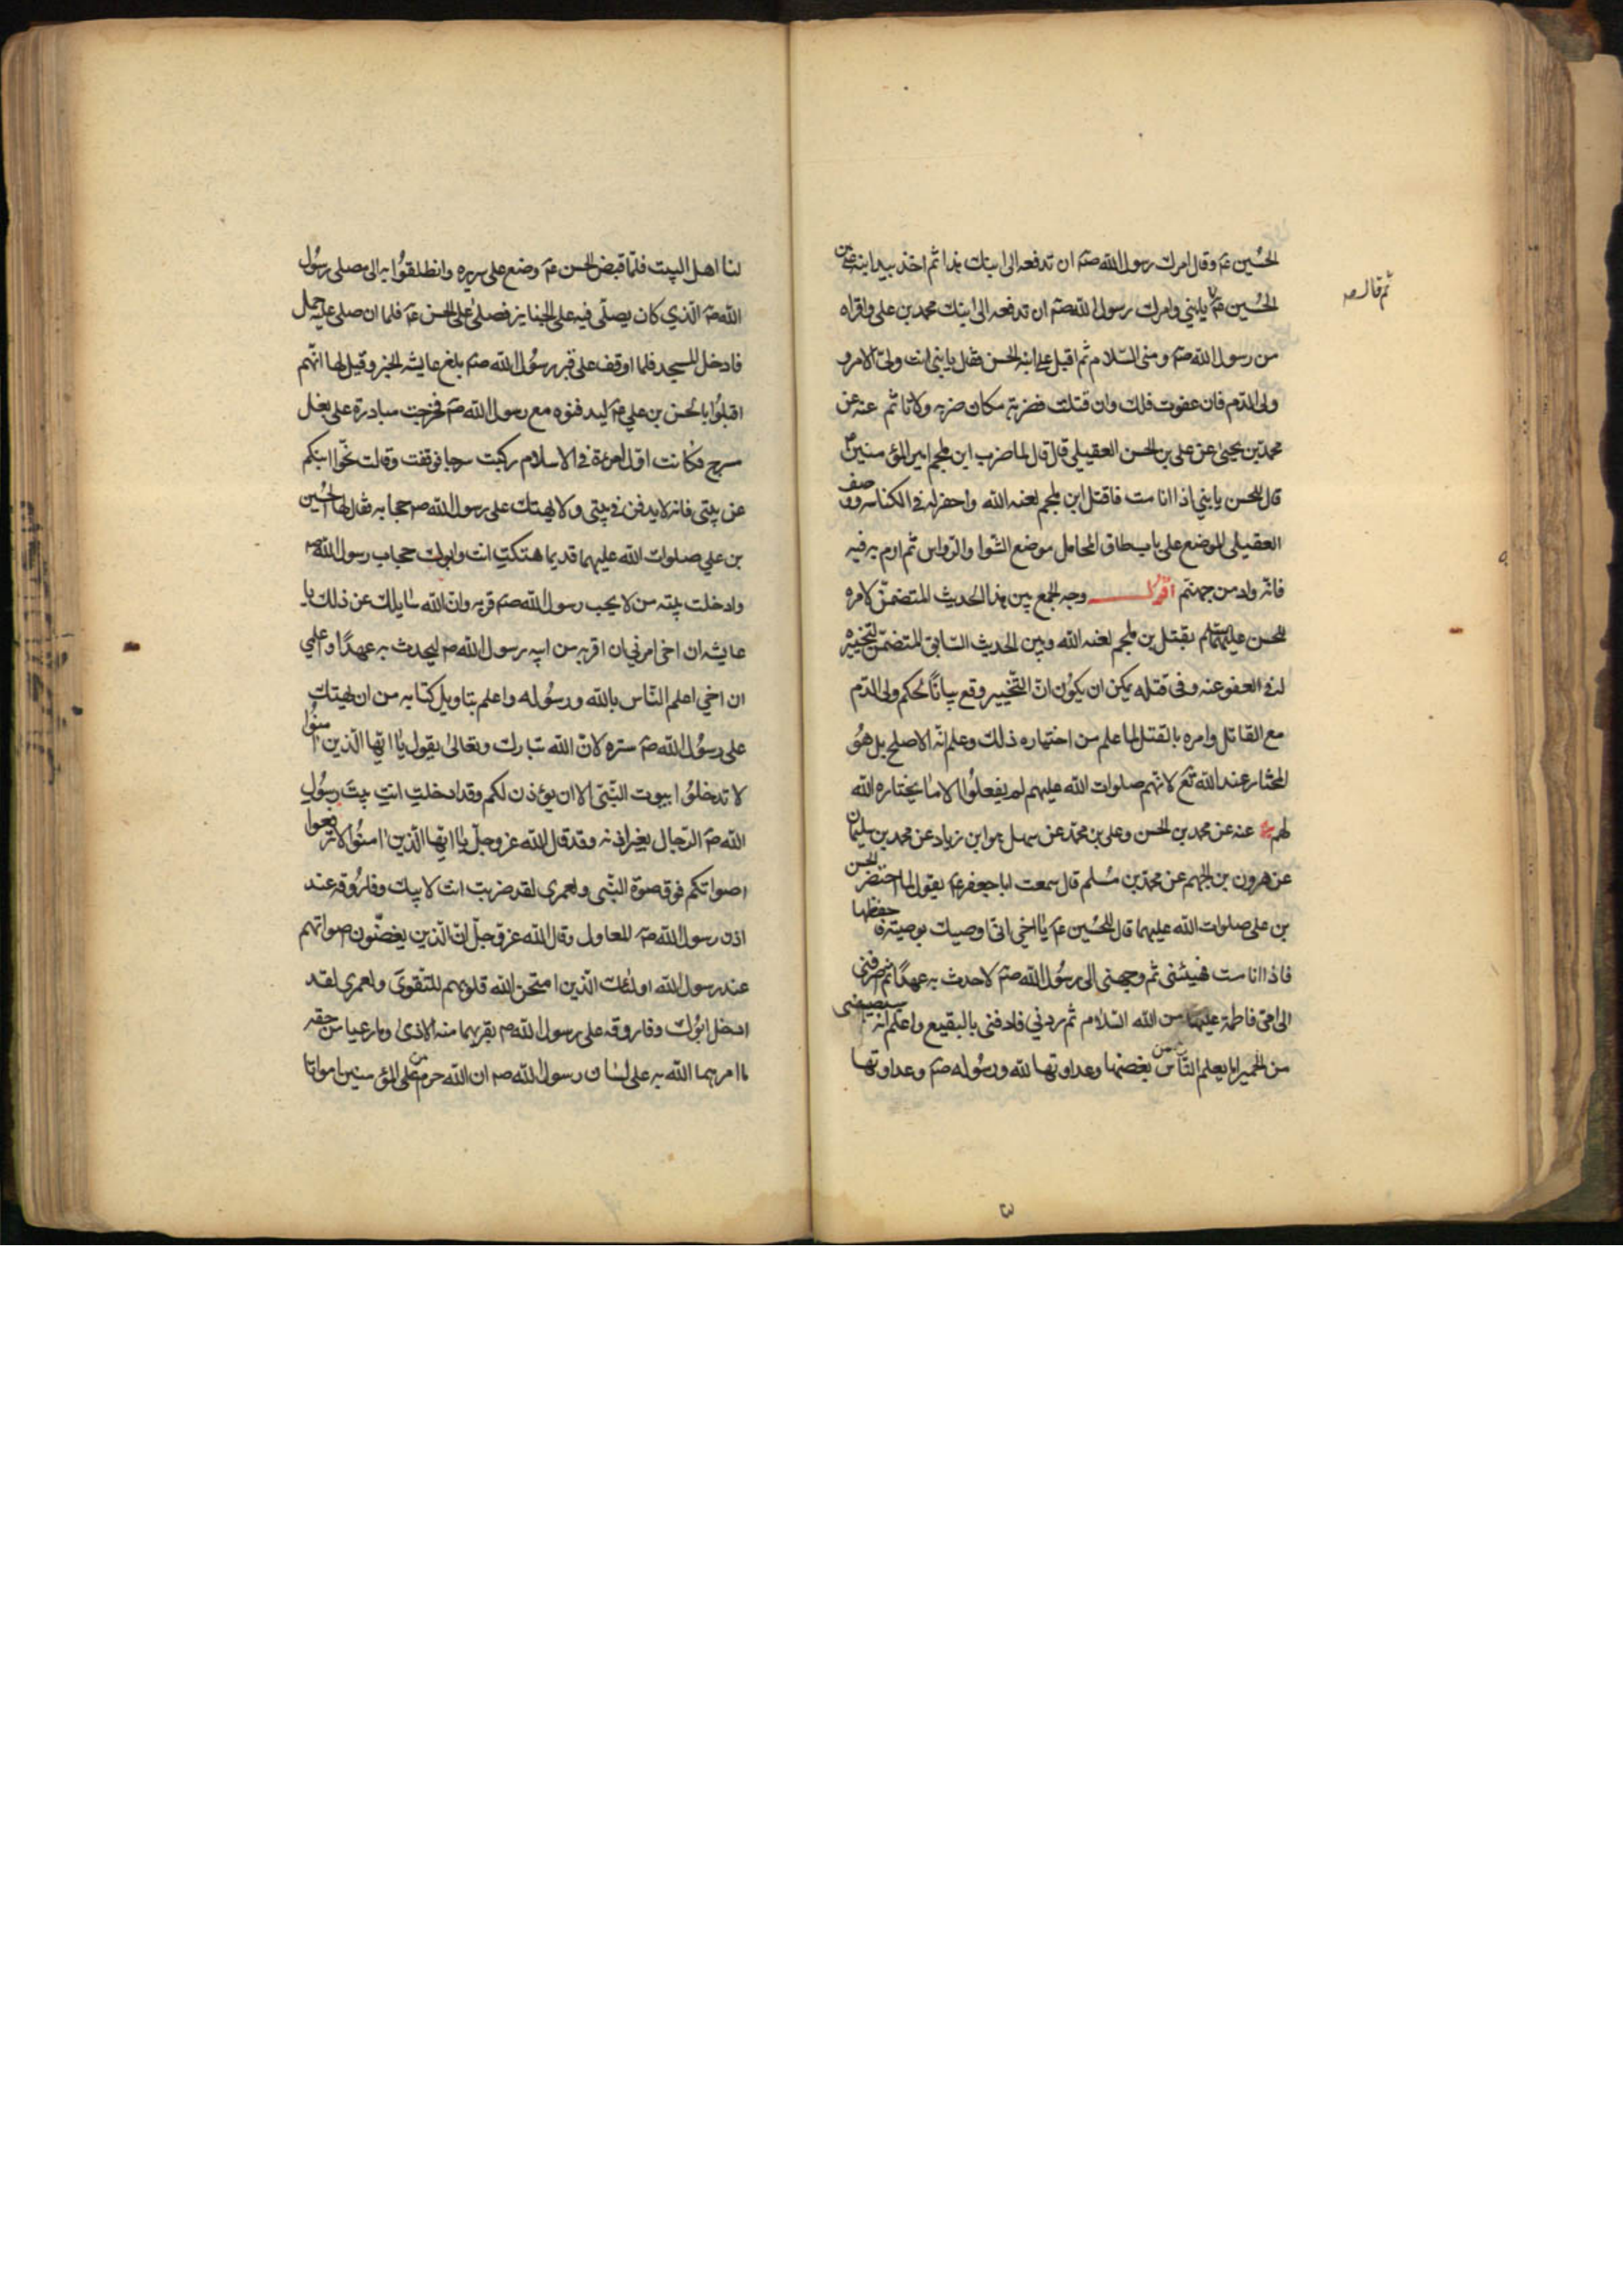 الحسين عم وقال امرك رسول الله صم ان تدفعه الى ابنك هذا ثم اخذ بيد ابنه علي بن
الحسين عم يا بني وامرك رسول الله صم ان تدفعه الى ابنك محمد بن علي واقراه
ثم قال له صه
من رسول الله صم ومني السلام ثم اقبل على ابنه الحسن فقال يا بني انت ولي الامر و
ولى الدم فان عفوت فلك وان قتلت فضربة مكان ضربه ولا تاثم عنه عن
محمد بن يحيى عن علي بن الحسن العقيلي قال قال لما ضرب ابن ملجم امير المؤمنين عم
قال للحسن يا بني اذا انا مت فاقتل ابن ملجم لعنه الله واحفر له في الكناسه ووصف
العقيلي الموضع على باب طاق المحامل موضع الشوا والرواس ثم ارم به فيه
فانه واد من جهنم اقول وجه الجمع بين هذا الحديث المتضمن لامره
للحسن عليهما السلم بقتل بن ملجم لعنه الله وبين الحديث السابق المتضمن لتخييره
له في العفو عنه وفى قتله يمكن ان يكون ان التخيير وقع بيانًا لحكم ولى الدم
مع القاتل وامره بالقتل لما علم من اختياره ذلك وعلم انه الاصلح بل هو
المختار عند الله تع لانهم صلوات الله عليهم لم يفعلوا الا ما يختاره الله
لهم عنه عن محمد بن الحسن وعلي بن محمد عن سهل هو ابن زياد عن محمد بن سليمان
عن هرون بن الجهم عن محمد بن مسلم قال سمعت ابا جعفر عم يقول لما احتضر الحسن
بن علي صلوات الله عليهما قال للحسين عم يا اخي اني اوصيك بوصية فاحفظها
فاذا انا مت فهيئني ثم وجهني الى رسول الله صم لاحدث به عهدًا ثم اصرفني
الى امي فاطمة عليها من الله السلام ثم ردني فادفني بالبقيع واعلم انه سيصيبني
من الحميرا ما يعلم الناس من بغضها وعداوتها لله ورسوله صم وعداوتها
لنا اهل البيت فلما قبض الحسن عم وضع على سريره وانطلقوا به الى مصلى رسول
الله صم الذي كان يصلي فيه على الجنايز فصلى على الحسن عم فلما ان صلى عليه حمل
فادخل المسجد فلما اوقف على قبر رسول الله صم بلغ عايشه الخبر وقيل لها انهم
اقبلوا بالحسن بن علي عم ليدفنوه مع رسول الله صم فخرجت مبادرة على بغل
بسرج فكانت اول امرءة في الاسلام ركبت سرجا فوقفت وقالت نحوا ابنكم
عن بيتى فانه لا يدفن في بيتى ولا يهتك على رسول الله صم حجابه فقال لها الحسين
بن علي صلوات الله عليهما قديما هتكتِ انت وابوك حجاب رسول الله صم
وادخلت بيته من لا يحب رسول الله صم قربه وان الله سايلك عن ذلك يا
عايشه ان اخى امرني ان اقربه من ابيه رسول الله صم ليحدث به عهدًا واعلمي
ان اخي اعلم الناس بالله ورسوله واعلم بتاويل كتابه من ان يهتك
على رسول الله صم ستره لان الله تبارك وتعالى يقول يا ايها الذين امنوا
لا تدخلوا بيوت النبي الا ان يؤذن لكم وقد ادخلتِ انتِ بيتَ رسول
الله صم الرجال بغير اذنه وقد قال الله عز وجل يا ايها الذين امنوا لا ترفعوا
اصواتكم فوق صوة النبي ولعمري لقد ضربت انت لابيك وفاروقه عند
اذن رسول الله صم المعاول وقال الله عز وجل ان الذين يغضون اصواتهم
عند رسول الله اولئك الذين امتحن الله قلوبهم للتقوى ولعمري لقد
ادخل ابوك وفاروقه على رسول الله صم بقربهما منه الاذى وما رعيا من حقه
ما امرهما الله به على لسان رسول الله صم ان الله حرم من على المؤمنين امواتا